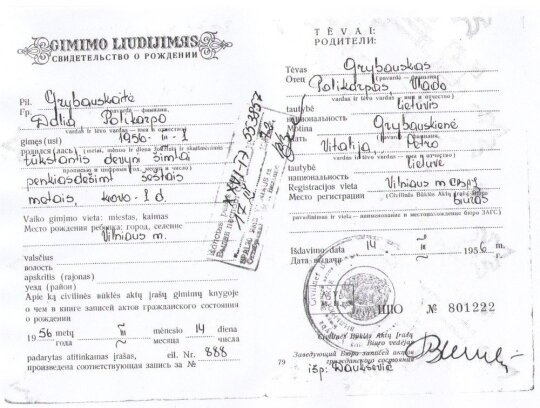 GIMIMO LIUDIJIMAS
СВИДЕТЕЛЬСТВО О РОЖДЕНИИ
Pil. Grybauskaitė
Гр.
pavardė — фамилия
Dalia Polikarpo
vardas ir tėvo vardas — имя и отчество
gimęs (usi) 1956 - III - 1
родился (лась)
tūkstantis devyni šimtai
прописью и цифрами (год, месяц и число)
penkiasdešimt šeštais
metais, kovo - 1 d.
Vaiko gimimo vieta: miestas, kaimas
Место рождения ребенка: город, селение
Vilniaus m.
valsčius
волость
apskritis (rajonas)
уезд (район)
Apie ką civilinės būklės aktų įrašų gimimų knygoje
о чем в книге записей актов гражданского состояния
о рождении
1956 metų III mėnesio 14 diena
года месяца числа
padarytas atitinkamas įrašas, eil. Nr. 888
произведена соответствующая запись за №
XXIII-ЛД 553957
TĖVAI:
РОДИТЕЛИ:
Tėvas Grybauskas
Отец
pavardė — фамилия
Polikarpas Vlado
vardas ir tėvo vardas — имя и отчество
tautybė lietuvis
национальность
Grybauskienė
pavardė — фамилия
Vitalija Petro
vardas ir tėvo vardas — имя и отчество
tautybė lietuvė
национальность
Registracijos vieta Vilniaus m
Место регистрации (Civilinės Būklės Aktų Įrašų biuro
biuras
pavadinimas ir vieta — наименование и местонахождение бюро ЗАГС)
Išdavimo data 14 III 1956 m.
Дата выдачи г.
№ 801222
Civilinės Būklės Aktų Įrašų
Biuro vedėjas
Заведующий Бюро записей актов
гражданского состояния
79